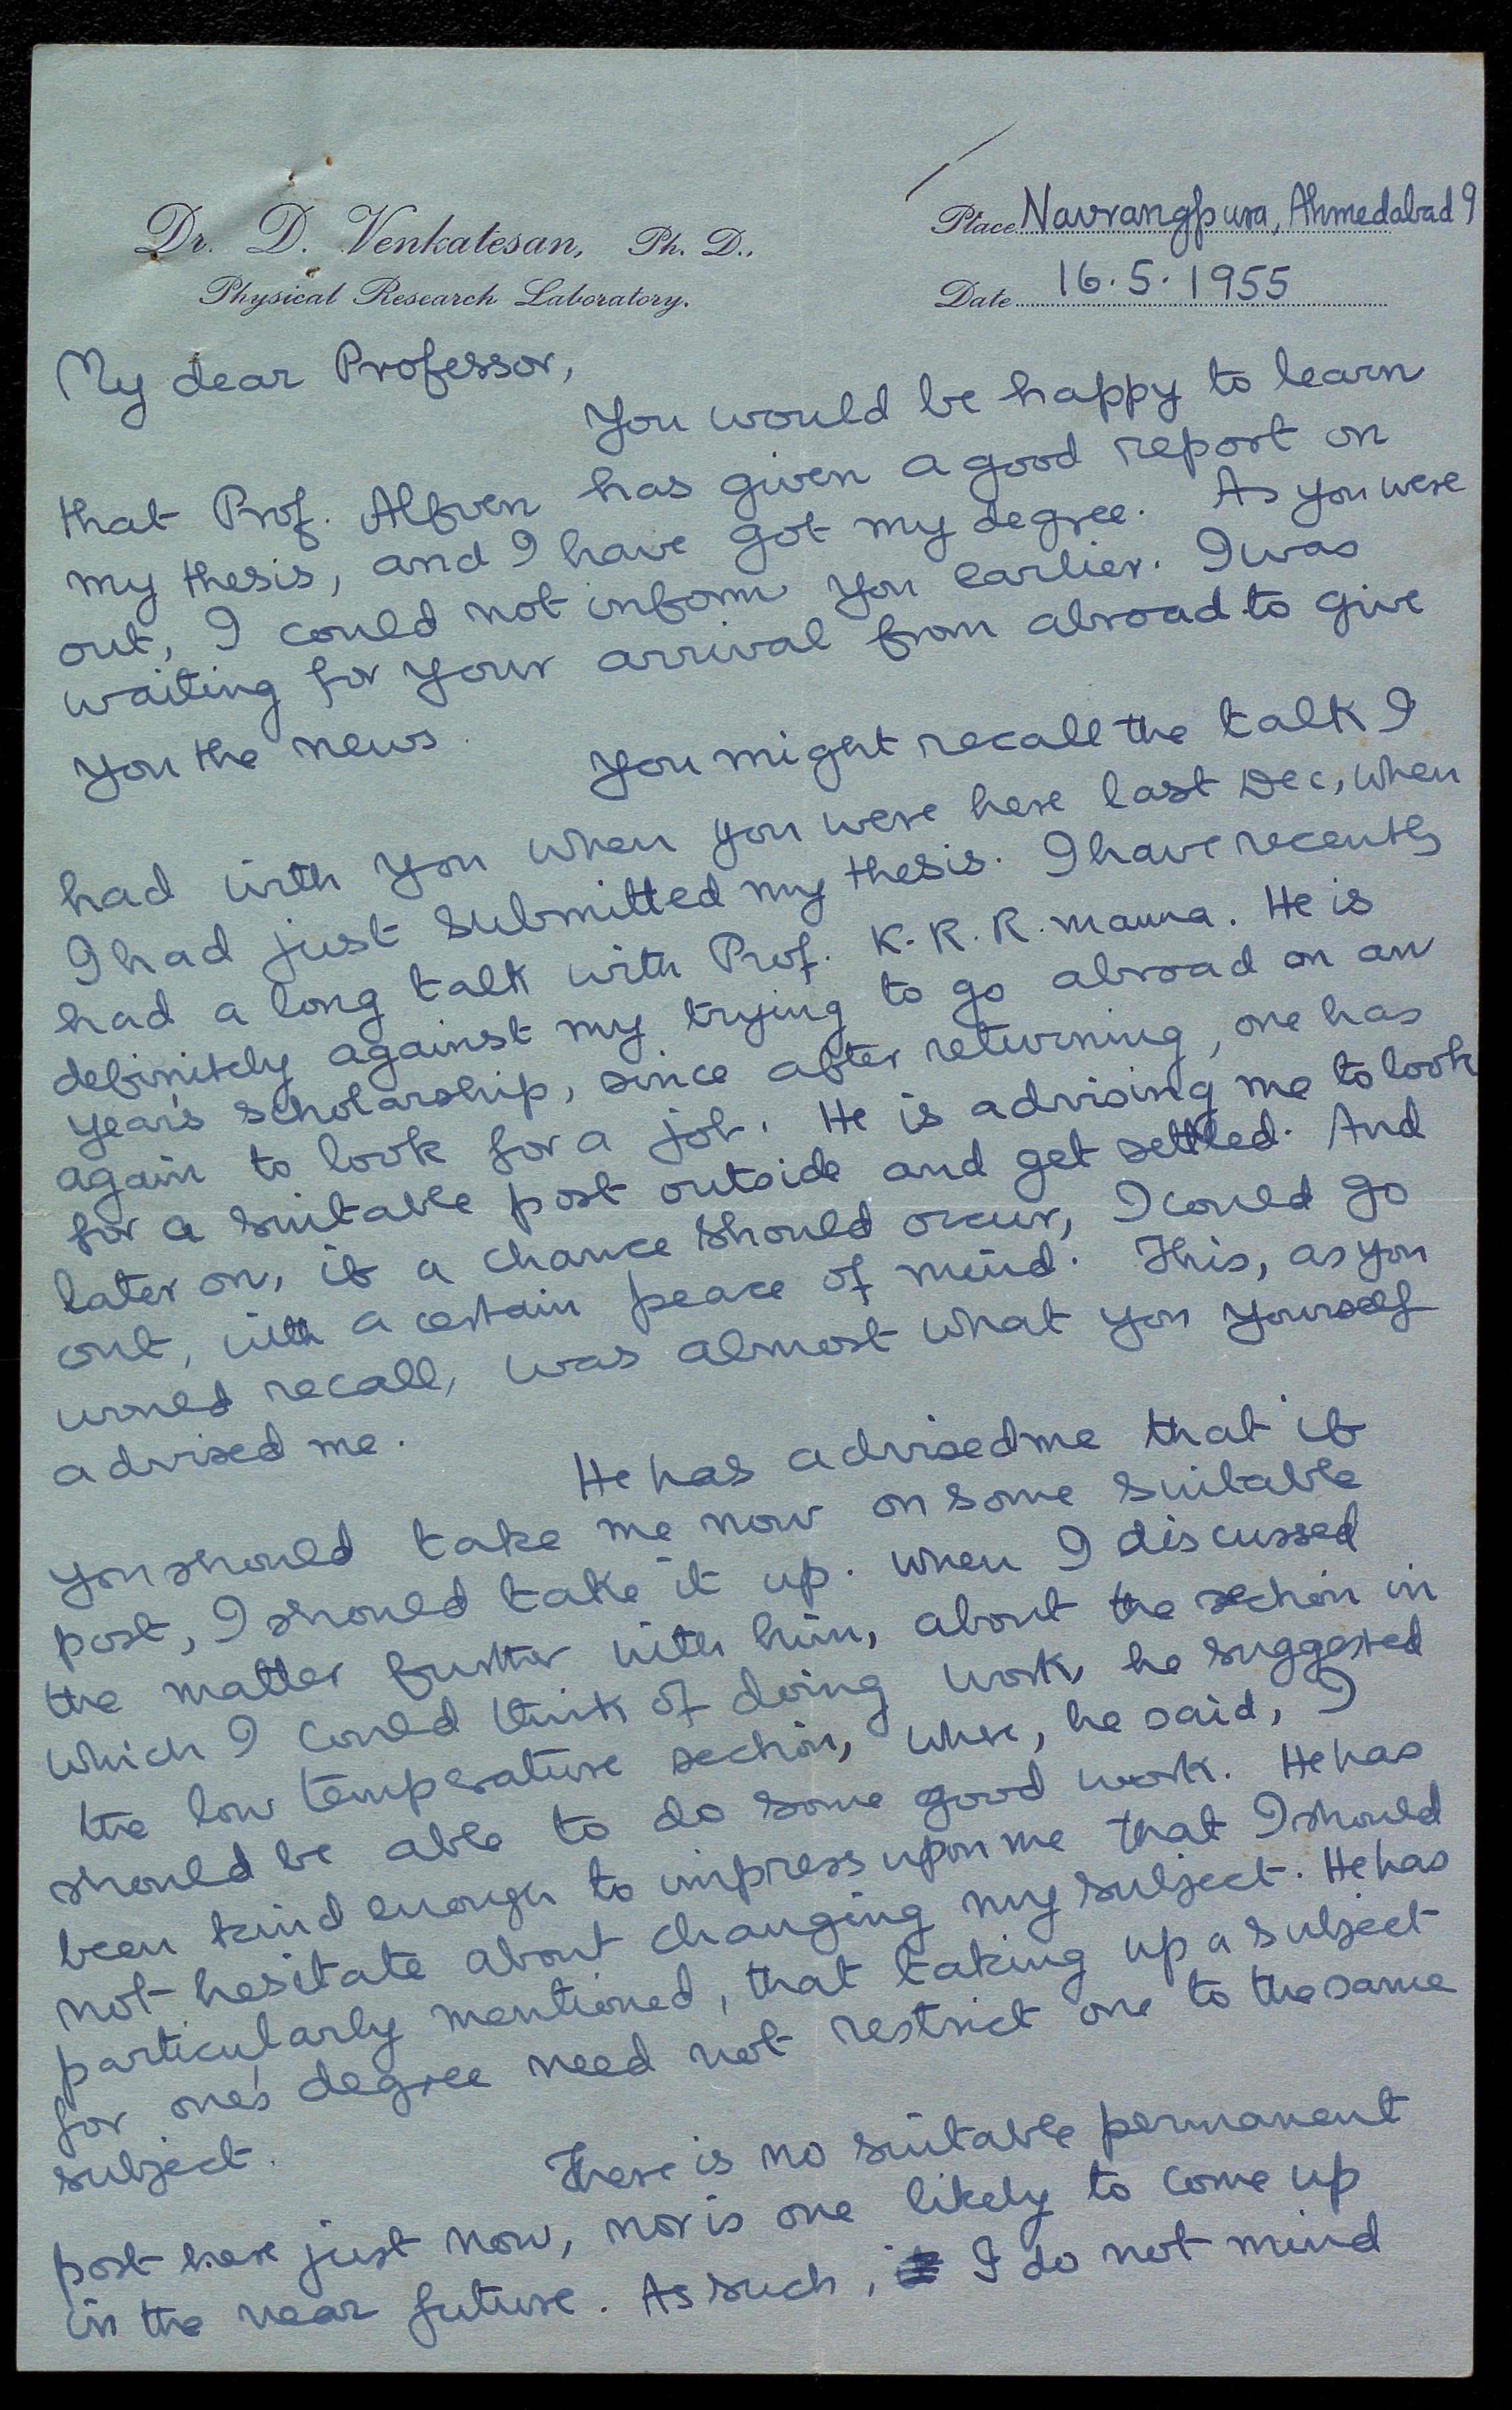 Dr. D. Venkatesan, Ph. D.,
Physical Research Laboratory.
Place Navrangpura, Ahmedabad 9
Date 16.5.1955
My dear Professor,
You would be happy to learn
that Prof. Alfven has given a good report on
my thesis, and I have got my degree. As you were
out, I could not inform you earlier. I was
waiting for your arrival from abroad to give
you the news.
You might recall the talk I
had with you when you were here last Dec, when
I had just submitted my thesis. I have recently
had a long talk with Prof. K. R. R. He is
definitely against my trying to go abroad on an
year's scholarship, since after returning, one has
again to look for a job. He is advising me to look
for a suitable post outside and get settled. And
later on, if a chance should occur, I could go
out, with a certain peace of mind. This, as you
would recall, was almost what you yourself
advised me.
He has advised me that if
you should take me now on some suitable
post, I should take it up. When I discussed
the matter further with him, about the section in
which I could think of doing work, he suggested
the low temperature section, where, he said, I
should be able to do some good work. He has
been kind enough to impress upon me that I should
not hesitate about changing my subject. He has
particularly mentioned, that taking up a subject
for one's degree need not restrict one to the same
subject.
There is no suitable permanent
post here just now, nor is one likely to come up
in the near future. As such, I do not mind